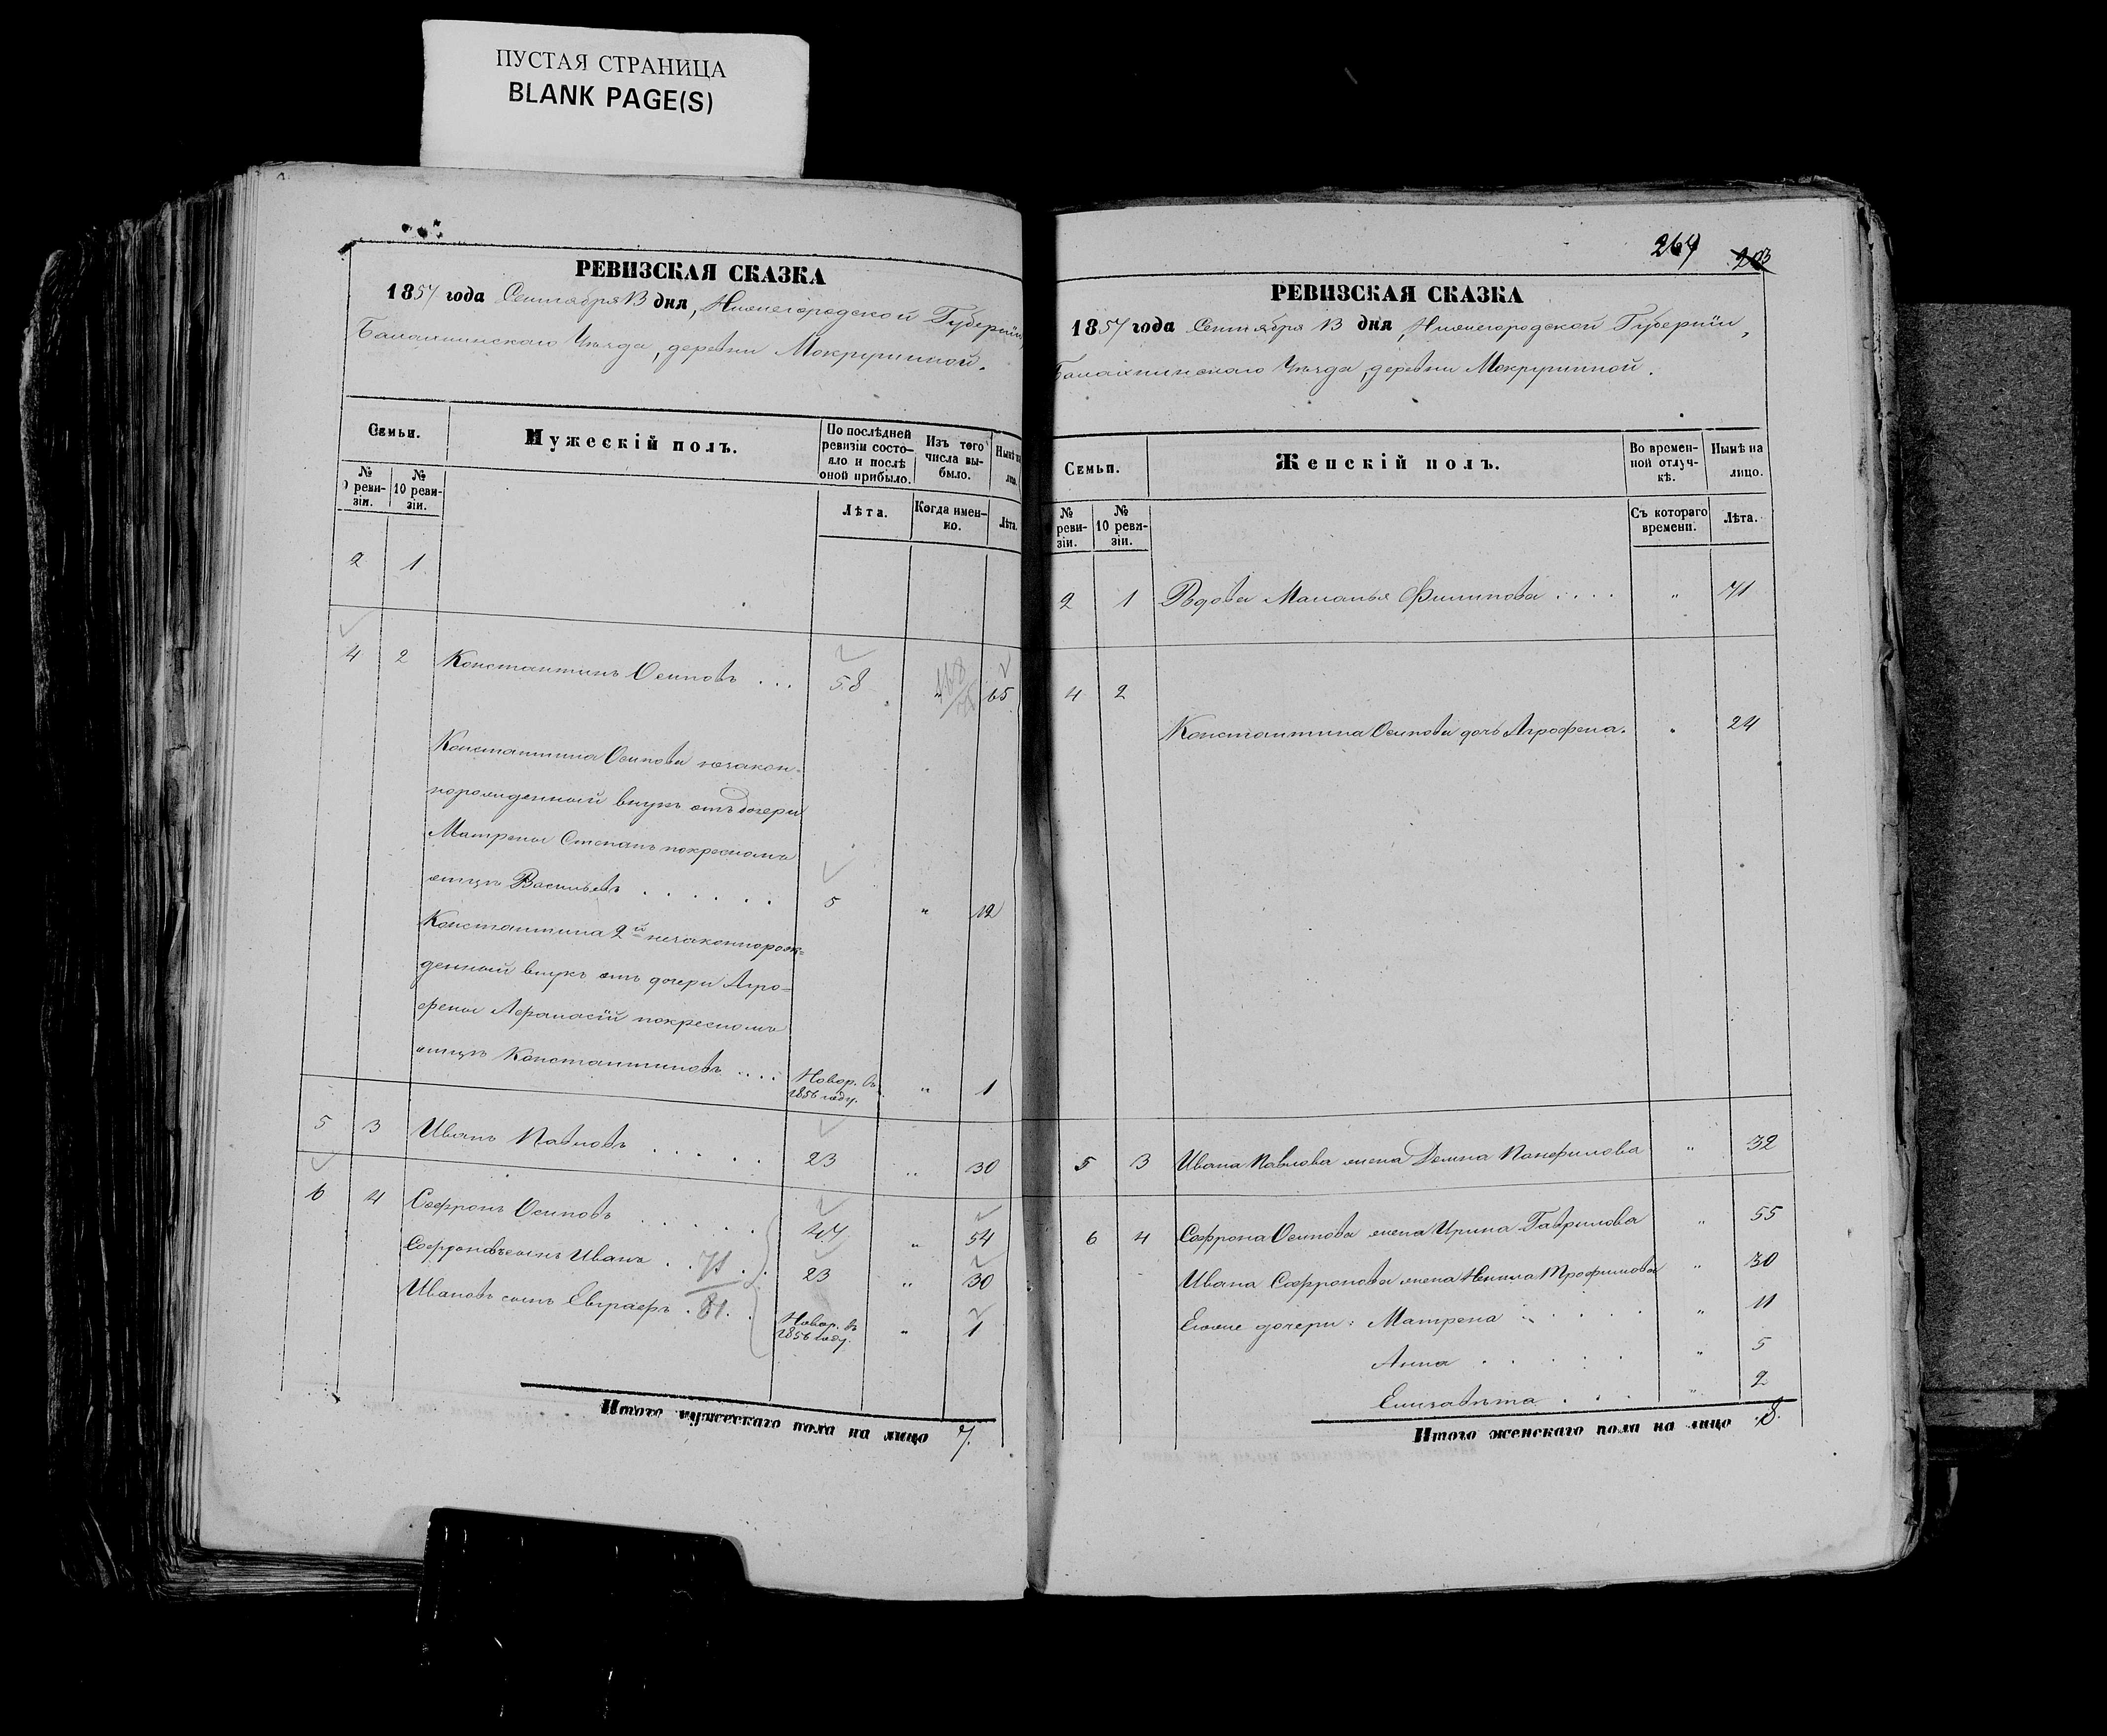 ПУСТАЯ СТРАНИЦА
BLANK PAGE(S)
РЕВИЗСКАЯ СКАЗКА
1857 года Сентября 13 дня, Нижегородской Губернiи,
Балахнинскаго Уѣзда, деревни Мокрушиной.
Семьи.
Мужескiй полъ.
По послѣдней ревизiи состояло и послѣ оной прибыло.
Изъ того числа выбыло.
Нынѣ на лицо.
№ 9 ревизiи.
№ 10 ревизiи.
Лѣта.
Когда именно.
Лѣта.
2 1
4 2 Константинъ Осиповъ . . . 58 „ 65
Константина Осипова незакон-
норожденный внукъ отъ дочери
Матрены Степанъ покресному
отцу Васильевъ . . . . . . 5 „ 12
Константина 2й незаконнорож-
денный внукъ отъ дочери Агро-
фены Афанасiй покресному
отцу Константиновъ . . . . Новор. въ 1856 году. „ 1
5 3 Иванъ Павловъ . . . . . 23 „ 30
6 4 Софронъ Осиповъ . . . . . 47 „ 54
Софроновъ сынъ Иванъ . . 71 . . 23 „ 30
Ивановъ сынъ Евграфъ . 81 . . Новор. въ 1856 году. „ 1
Итого мужескаго пола на лицо 7.
264 203
РЕВИЗСКАЯ СКАЗКА
1857 года Сентября 13 дня, Нижегородской Губернiи,
Балахнинскаго Уѣзда, деревни Мокрушиной.
Семьи.
Женскiй полъ.
Во временной отлучкѣ.
Нынѣ на лицо.
№ ревизiи.
№ 10 ревизiи.
Съ котораго времени.
Лѣта.
2 1 Вдова Маланья Филипова . . . . „ 71
4 2
Константина Осипова дочь Агрофена. „ 24
5 3 Ивана Павлова жена Домна Панфилова „ 32
6 4 Софрона Осипова жена Ирина Гаврилова „ 55
Ивана Софронова жена Ненила Трофимова „ 30
Егоже дочери: Матрена . . . . . „ 11
Анна . . . . . „ 5
Елизавѣта . . . „ 2
Итого женскаго пола на лицо 8.